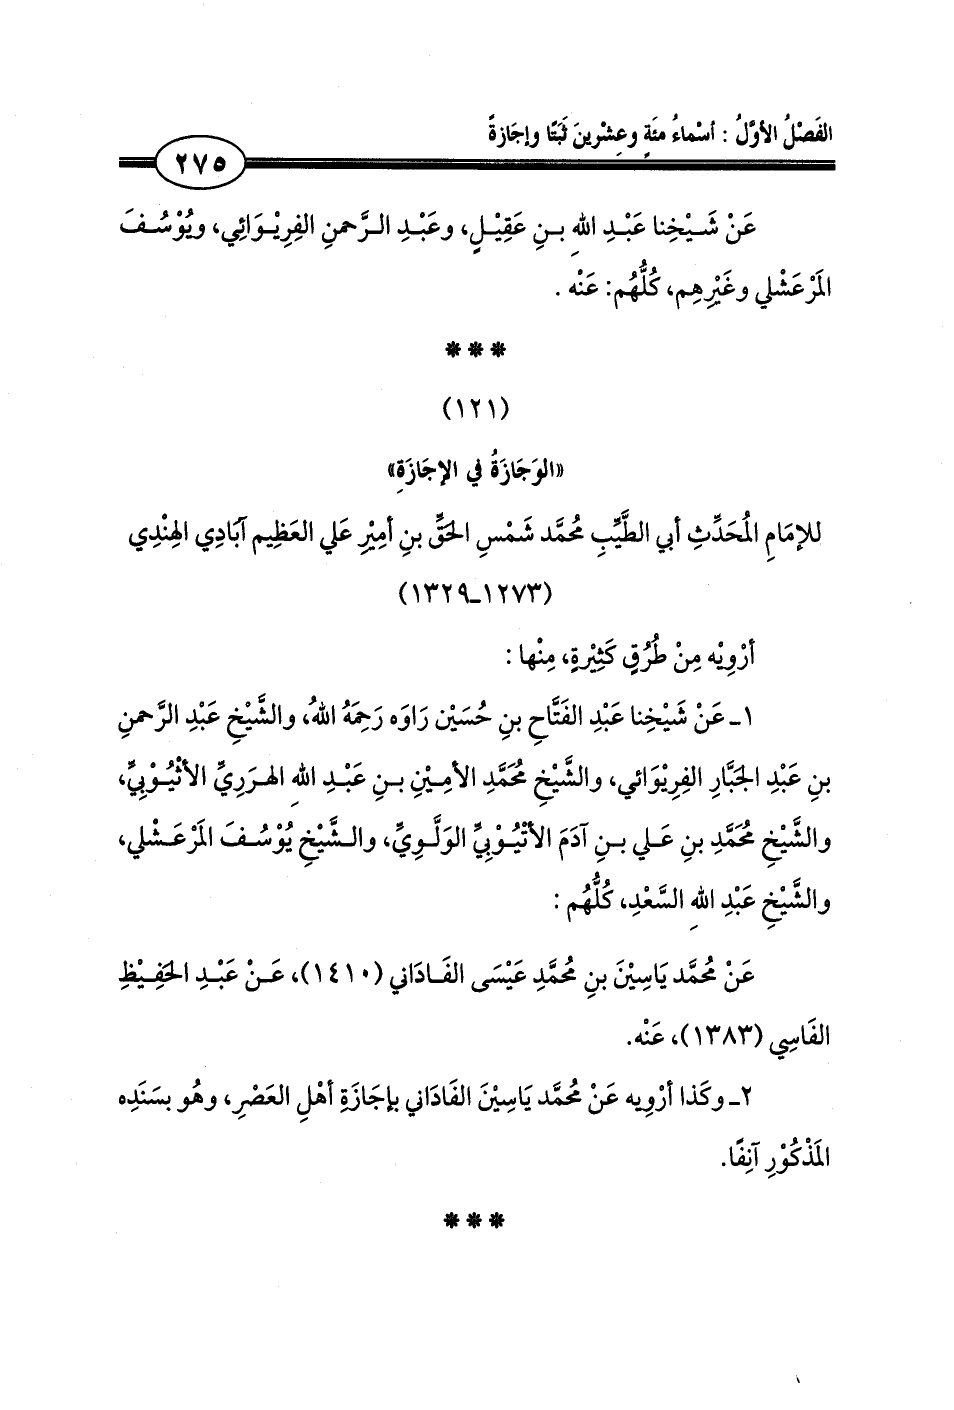 الفَصْلُ الأوَّلُ : أسْماءُ مئَةٍ وعِشرينَ ثَبَتًا وإجَازةً
٢٧٥
عَنْ شَيْخِنا عَبْدِ اللهِ بنِ عَقِيْلٍ، وعَبْدِ الرَّحمنِ الفِرِيْوَائي، ويُوْسُفَ
المَرْعَشْلي وغَيْرِهِم، كُلُّهُم: عَنْه .
***
(١٢١)
«الوَجَازَةُ في الإجَازَةِ»
للإمَامِ المُحَدِّثِ أبي الطَّيِّبِ مُحمَّد شَمْسِ الحَقِّ بنِ أمِيْرِ عَلي العَظِيم آبَادِي الهِنْدِي
(١٢٧٣ـ١٣٢٩)
أرْوِيْه مِنْ طُرُقٍ كَثِيْرةٍ، مِنْها :
١ـ عَنْ شَيْخِنا عَبْدِ الفَتَّاحِ بنِ حُسَيْن رَاوَه رَحِمَهُ اللهُ، والشَّيْخِ عَبْدِ الرَّحمنِ
بنِ عَبْدِ الجَبَّارِ الفِرِيْوَائي، والشَّيْخِ مُحمَّدِ الأمِيْنِ بنِ عَبْدِ اللهِ الهرَرِيِّ الأثْيُوْبيِّ،
والشَّيْخِ مُحمَّدِ بنِ عَلي بنِ آدَمَ الأثْيُوْبيِّ الوَلَّوِيِّ، والشَّيْخِ يُوْسُفَ المَرْعَشْلي،
والشَّيْخِ عَبْدِ اللهِ السَّعْدِ، كُلُّهُم :
عَنْ مُحمَّد يَاسِيْنَ بنِ مُحمَّدِ عَيْسَى الفَادَاني (١٤١٠)، عَنْ عَبْدِ الحَفِيْظِ
الفَاسِي (١٣٨٣)، عَنْه.
٢ـ وكَذا أرْوِيه عَنْ مُحمَّد يَاسِيْنَ الفَادَاني بإجَازَةِ أهْلِ العَصْرِ، وهُو بسَنَدِه
المَذْكُوْرِ آنِفًا.
***